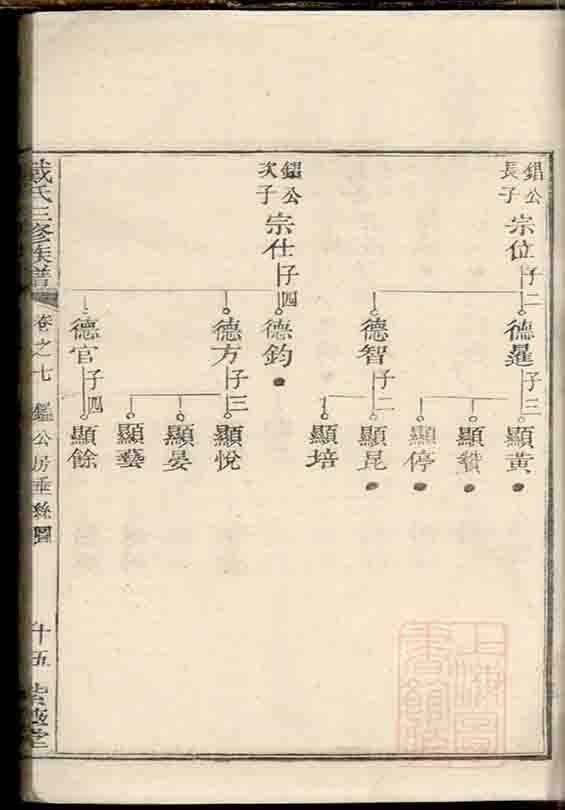 錩公長子
宗位
子二
德暹
子三
顯黃
顯贊
顯停
德智
子二
顯昆
顯培
鑃公次子
宗仕
子四
德鈞
德方
子三
顯悅
顯晏
顯藝
德官
子四
顯餘
戴氏三修族譜
卷之七
鑑公房垂絲圖
十五
上海圖書館藏